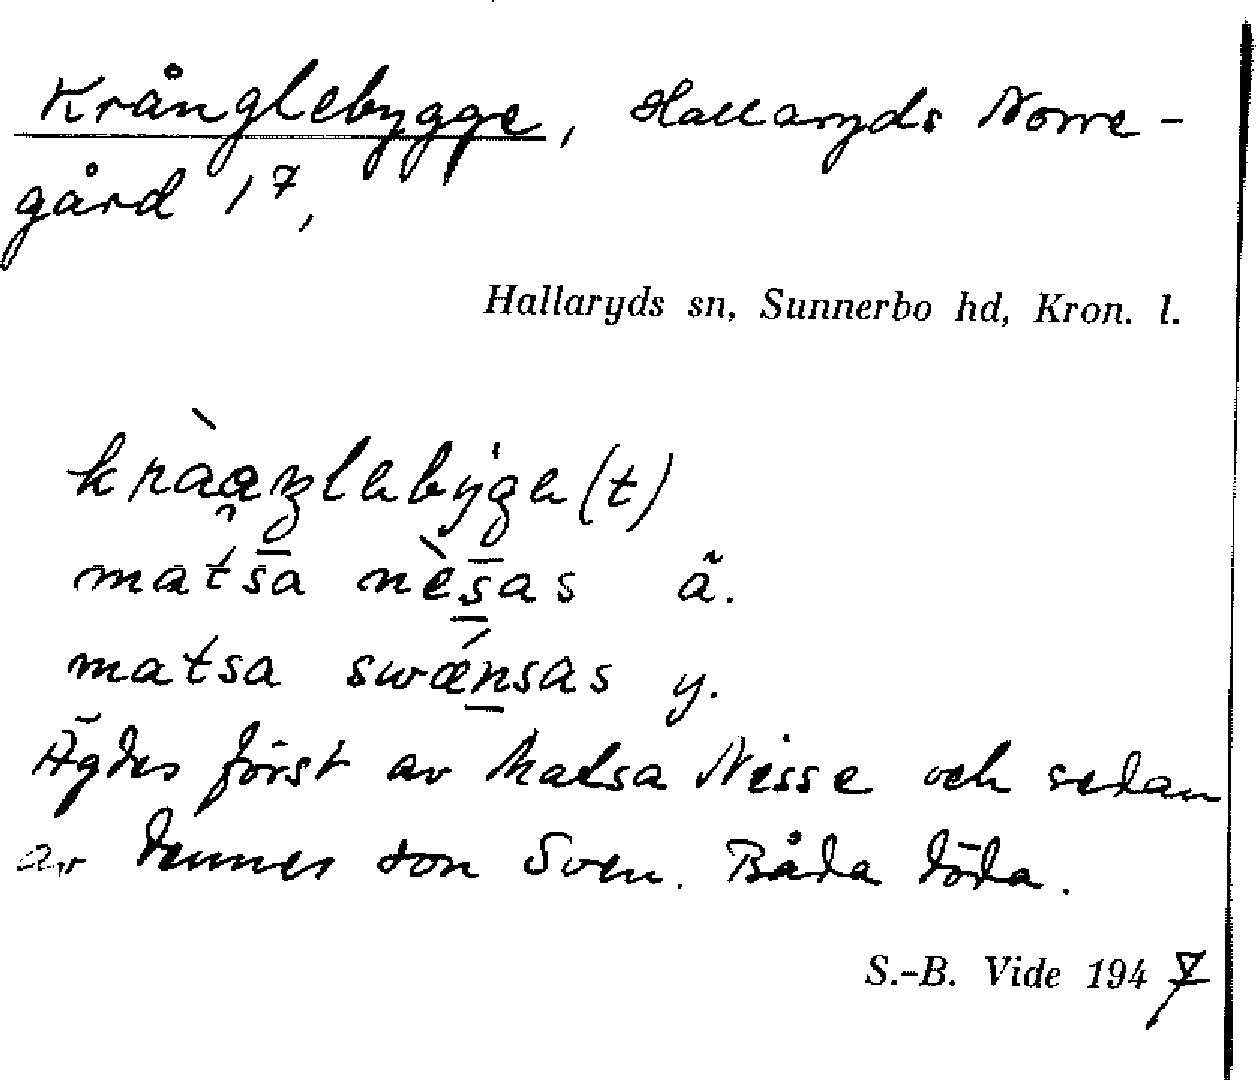 Krånglebygge, Hallaryds Norre-
gård 1⁷,
Hallaryds sn, Sunnerbo hd, Kron. l.
kràaŋlebýge(t)
matsa nèsas ä.
matsa swǽnsas y.
Ägdes först av Matsa Nisse och sedan
av dennes son Sven. Båda döda.
S.-B. Vide 1947